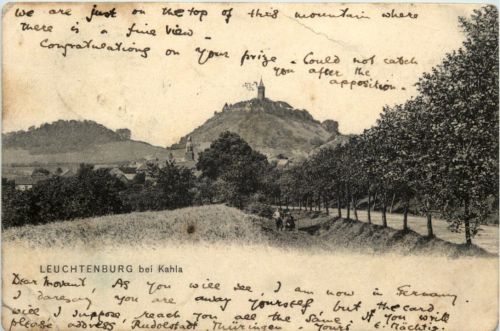 We are just on the top of this mountain where
there is a fine view.
Congratulations on your prize. Could not catch
you after the
apposition.
LEUCHTENBURG bei Kahla
Dear Morant, As you will see, I am now in Germany.
I daresay you are away yourself but the card
will I suppose, reach you all the same. If you write
please address, Rudolstadt Thüringen. Yours